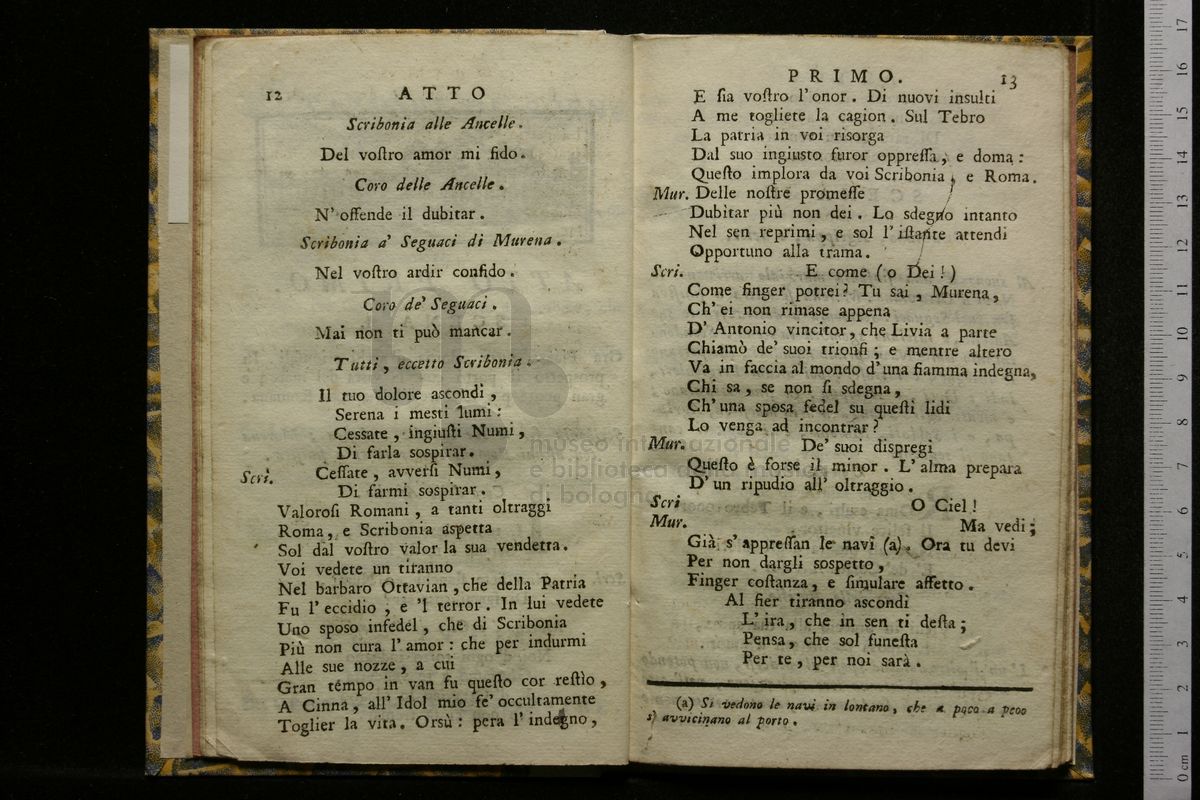 12 ATTO
Scribonia alle Ancelle.
Del voſtro amor mi fido.
Coro delle Ancelle.
N' offende il dubitar.
Scribonia a' Seguaci di Murena.
Nel voſtro ardir confido.
Coro de' Seguaci.
Mai non ti può mancar.
Tutti, eccetto Scribonia.
Il tuo dolore ascondi,
Serena i mesti lumi:
Cessate, ingiuſti Numi,
Di farla sospirar.
Scri. Ceſſate, avverſi Numi,
Di farmi sospirar.
Valoroſi Romani, a tanti oltraggi
Roma, e Scribonia aspetta
Sol dal voſtro valor la sua vendetta.
Voi vedete un tiranno
Nel barbaro Ottavian, che della Patria
Fu l' eccidio, e 'l terror. In lui vedete
Uno sposo infedel, che di Scribonia
Più non cura l' amor: che per indurmi
Alle sue nozze, a cui
Gran tempo in van fu queſto cor reſtìo,
A Cinna, all' Idol mio fe' occultamente
Toglier la vita. Orsù: pera l' indegno,
PRIMO. 13
E ſia voſtro l' onor. Di nuovi insulti
A me togliete la cagion. Sul Tebro
La patria in voi risorga
Dal suo ingiusto furor oppreſſa, e doma:
Queſto implora da voi Scribonia, e Roma.
Mur. Delle noſtre promeſſe
Dubitar più non dei. Lo sdegno intanto
Nel sen reprimi, e sol l' iſtante attendi
Opportuno alla trama.
Scri. E come (o Dei!)
Come finger potrei? Tu sai, Murena,
Ch' ei non rimase appena
D' Antonio vincitor, che Livia a parte
Chiamò de' suoi trionfi; e mentre altero
Va in faccia al mondo d' una fiamma indegna,
Chi sa, se non ſi sdegna,
Ch' una sposa fedel su queſti lidi
Lo venga ad incontrar?
Mur. De' suoi dispregi
Queſto è forse il minor. L' alma prepara
D' un ripudio all' oltraggio.
Scri O Ciel!
Mur. Ma vedi;
Già s' appreſſan le navi (a). Ora tu devi
Per non dargli sospetto,
Finger coſtanza, e ſimulare affetto.
Al fier tiranno ascondi
L' ira, che in sen ti deſta;
Pensa, che sol funeſta
Per te, per noi sarà.
(a) Si vedono le navi in lontano, che a poco a poco
s' avvicinano al porto.
museo internazionale
e biblioteca della musica
di bologna